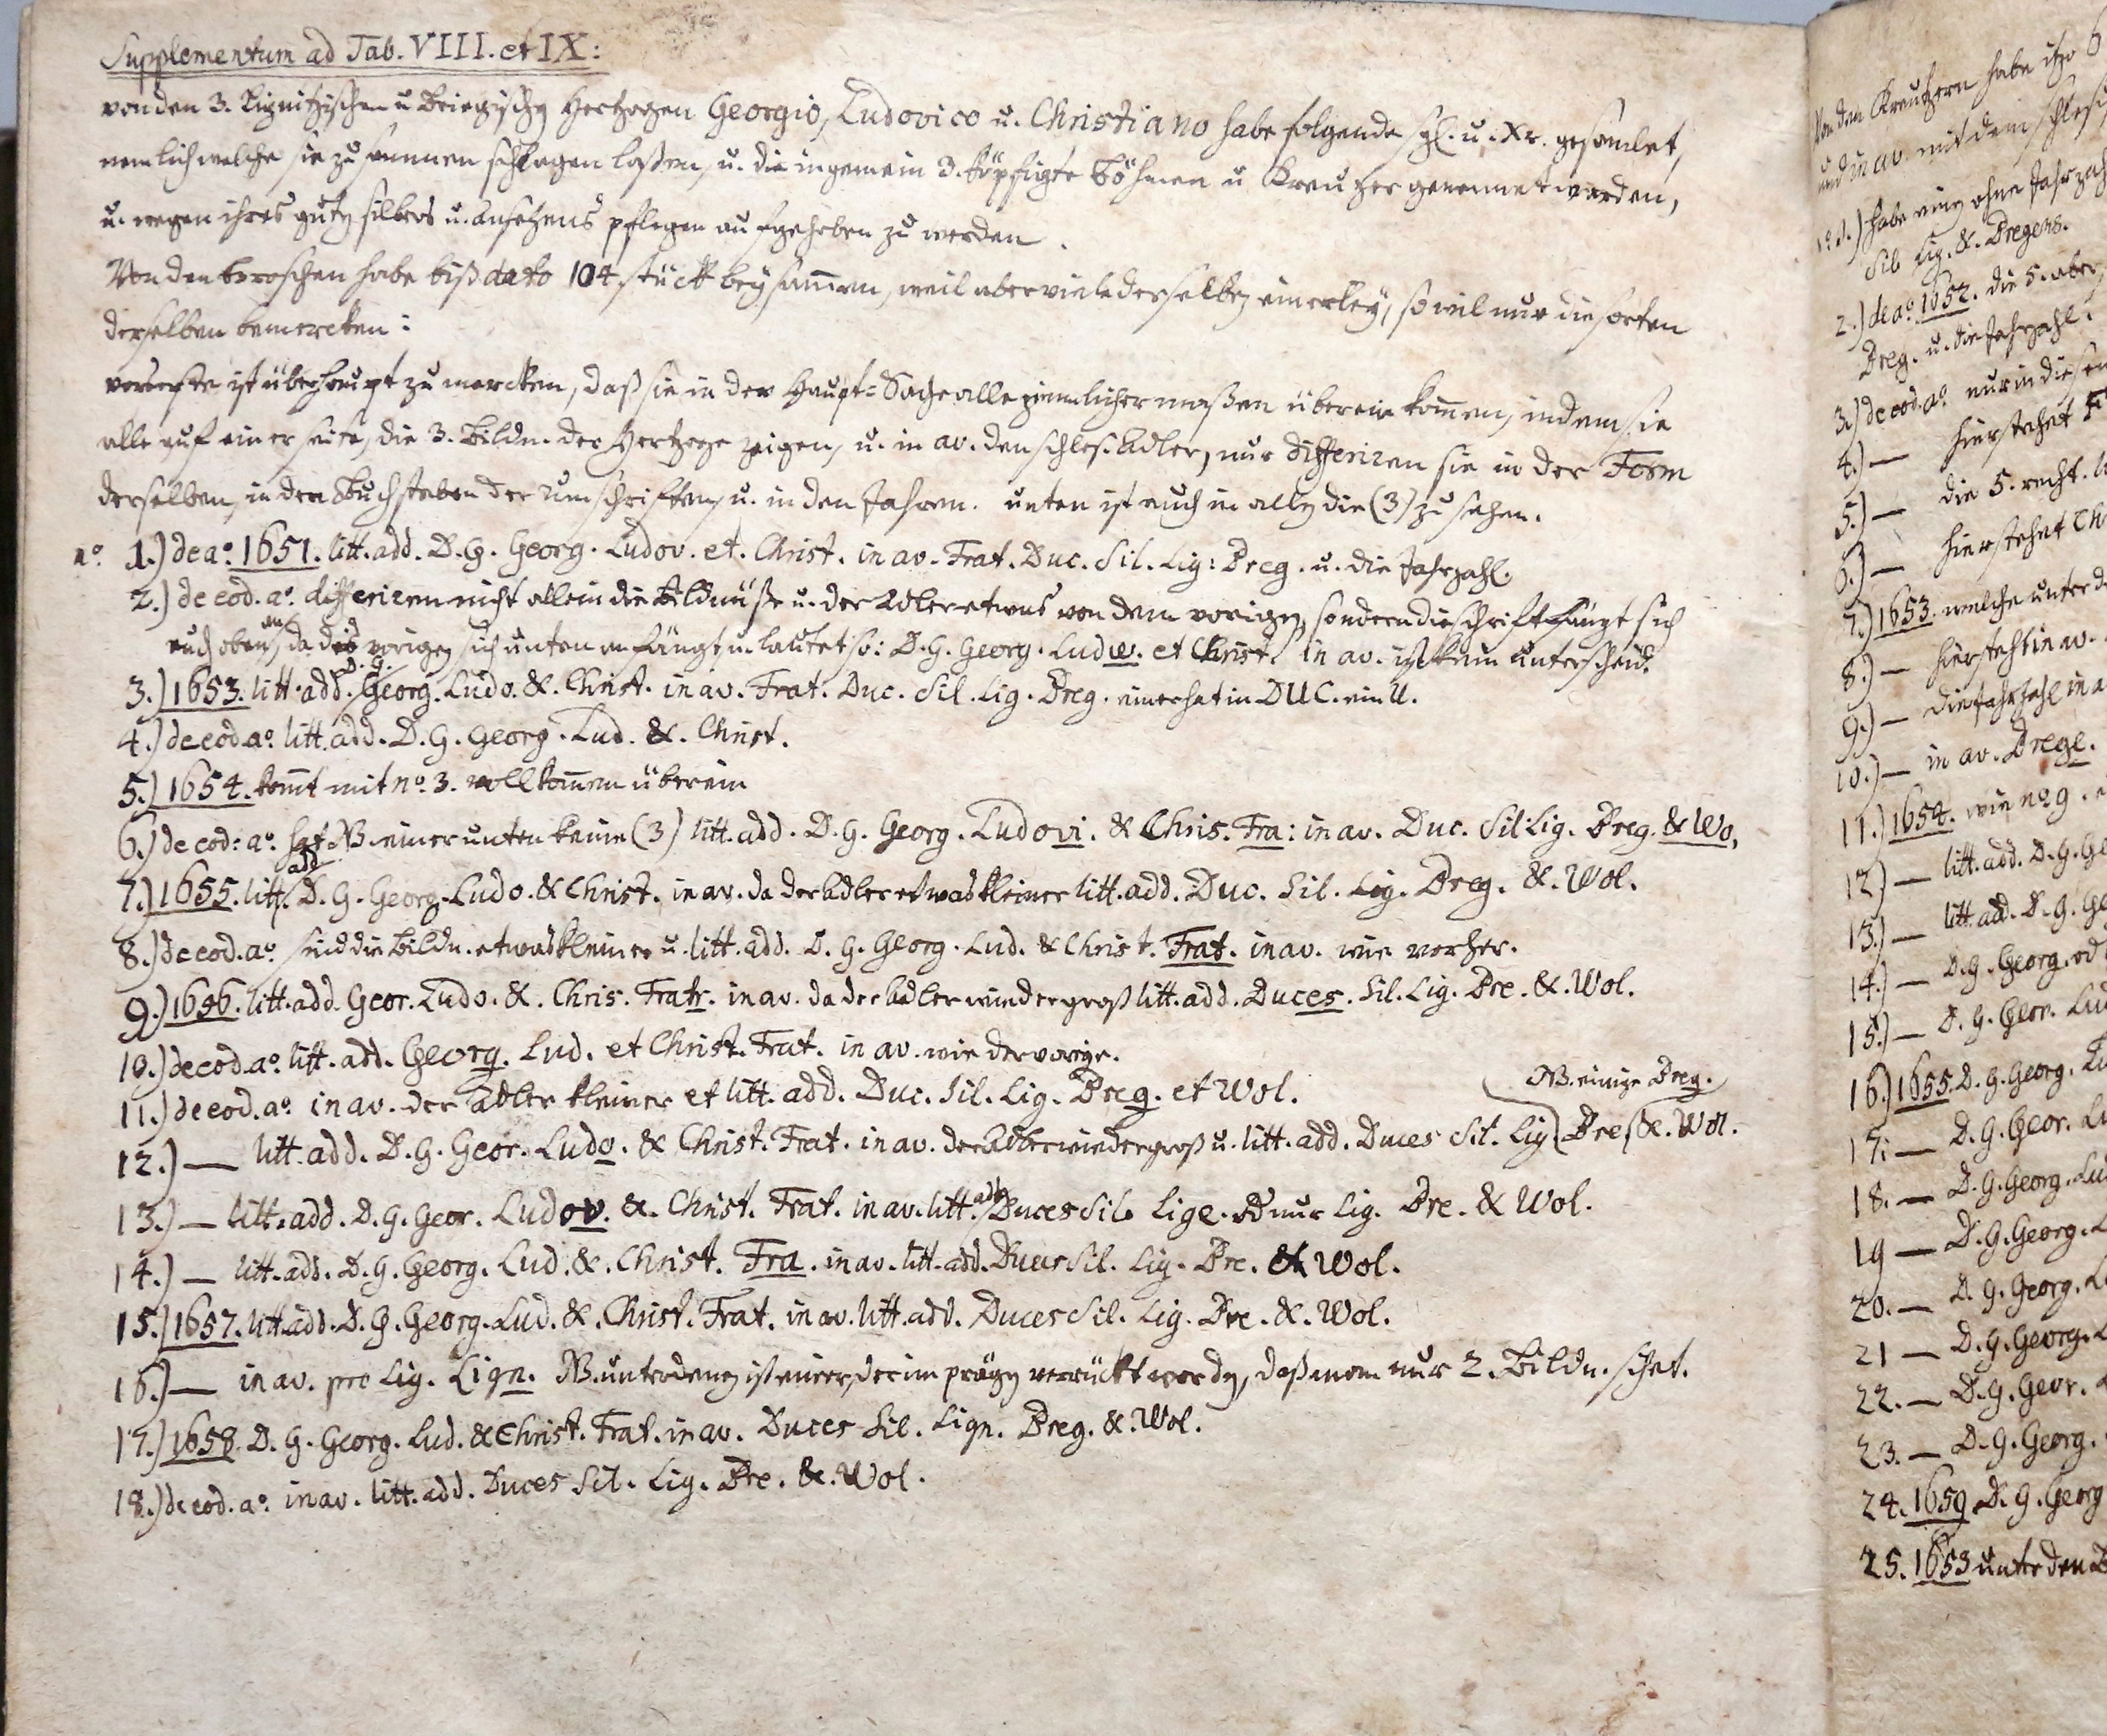 Supplementum ad Tab. VIII. et IX:
von den 3. Lignitzischen u. Briegischen Hertzogen Georgio, Ludovico u. Christiano habe folgende sgl. u. Xr. gesamlet,
nemlich welche sie zusammen schlagen laßen, u. die ingemein 3. köpfigte Böhmen u Kreutzer genennet werden,
u. wegen ihres guten silbers u. ansehens pflegen aufgehoben zu werden.
Von den Groschen habe biß dato 104. stück beysammen, weil aber viele derselben einerley, so wil nur die sorten
derselben bemercken:
vorerste ist überhaupt zu mercken, daß sie in der Haupt=Sache alle ziemlicher maßen überein kommen, indem sie
alle auf einer seite, die 3. Bildn. der Hertzoge zeigen, u. in av. den schles. Adler, nur differiren sie in der Form
derselben, in den Buchstaben der Umschriften, u. in den Jahren. unten ist auch in allen die (3) zu sehen.
no. 1.) de ao. 1651. litt. add. D. G. Georg. Ludov. et. Christ. in av. Frat. Duc. Sil. Lig: Breg. u. die Jahrzahl.
2.) de eod. ao. differiren nicht allein die Bildnüße u. der Adler etwas von dem vorigen, sondern die schrift fängt sich
auch oben an, da die vorigen sich unten anfängt u. lautet so: D. G. Georg. Ludw. et Christ. in av. ist kein unterscheid.
3.) 1653. litt. add. D. G. Georg. Ludo. &. Christ. in av. Frat. Duc. Sil. Lig. Breg. einer hat in DUC. ein U.
4.) de eod. ao. litt. add. D. G. Georg. Lud. &. Christ.
5.) 1654. komt mit no. 3. vollkommen überein
6.) de eod: ao. hat NB. einer unten keine (3) litt. add. D. G. Georg. Ludovi. & Chris. Fra: in av. Duc. Sil: Lig. Breg. & Wo,
7.) 1655. litt. add D. G. Georg. Ludo. & Christ. in av. da der Adler etwas kleiner litt. add. Duc. Sil. Lig. Breg. &. Wol.
8.) de eod. ao. sind die Bildn. etwas kleiner u. litt. add. D. G. Georg. Lud. & Christ. Frat. in av. wie vorher.
9.) 1656. litt. add. Geor. Ludo. &. Chris. Fratr. in av. da der Adler wieder groß litt. add. Duces. Sil. Lig. Bre. &. Wol.
10.) de eod. ao. litt. add. Georg. Lud. et Christ. Frat. in av. wie der vorige.
11.) de eod. ao. in av. der Adler kleiner et litt. add. Duc. Sil. Lig. Breg. et Wol.
NB. einige Breg.
12.) — litt. add. D. G. Geor. Ludo. & Christ. Frat. in av. der Adler wieder groß u. litt. add. Duces Sil. Lig Bre, &. Wol.
13.) — litt. add. D. G. Geor. Ludov. &. Christ. Frat. in av. litt. add Duces Sil. Lige. od nur Lig. Bre. & Wol.
14.) — litt. add. D. G. Georg. Lud. &. Christ. Fra. in av. litt. add. Duces Sil. Lig. Bre. & Wol.
15.) 1657. litt. add. D. G. Georg. Lud. &. Christ. Frat. in av. litt. add. Duces Sil. Lig. Bre. &. Wol.
16.) — in av. pro Lig. Lign. NB. unter denen ist einer, der im prägen verrückt worden, daß man nur 2. Bildn. sihet.
17.) 1658. D. G. Georg. Lud. & Christ. Frat. in av. Duces Sil. Lign. Breg. &. Wol.
18.) de eod. ao. in av. litt. add. Duces Sil. Lig. Bre. &. Wol.
Von den Kreutzern habe itzo 6
und in av. mit dem schlesi
no. 1.) habe einen ohne Jahrzahl
Sil Lig. &. Bregens.
2.) de ao. 1652. die 5. aber
Breg. u. die Jahrzahl.
3.) de eod. ao. nur in diesen
4.) — hier stehet
5.) — die 5. recht.
6.) — hier stehet Ch
7.) 1653. welche unter d
8.) — hier steht in av.
9.) — die Jahrzahl in a
10.) — in av. Brege.
11.) 1654. wie no. 9.
12.) — litt. add. D. G. Ge
13.) — litt. add. D. G. Ge
14.) — D. G. Georg. od
15.) — D. G. Geor. Lud
16.) 1655. D. G. Georg. Lu
17. — D. G. Geor. Lu
18. — D. G. Georg. Lu
19 — D. G. Georg. L
20. — D. G. Georg. L
21 — D. G. Georg. L
22. — D. G. Geor.
23. — D. G. Georg.
24. 1659 D. G. Georg
25. 1653 unter den B